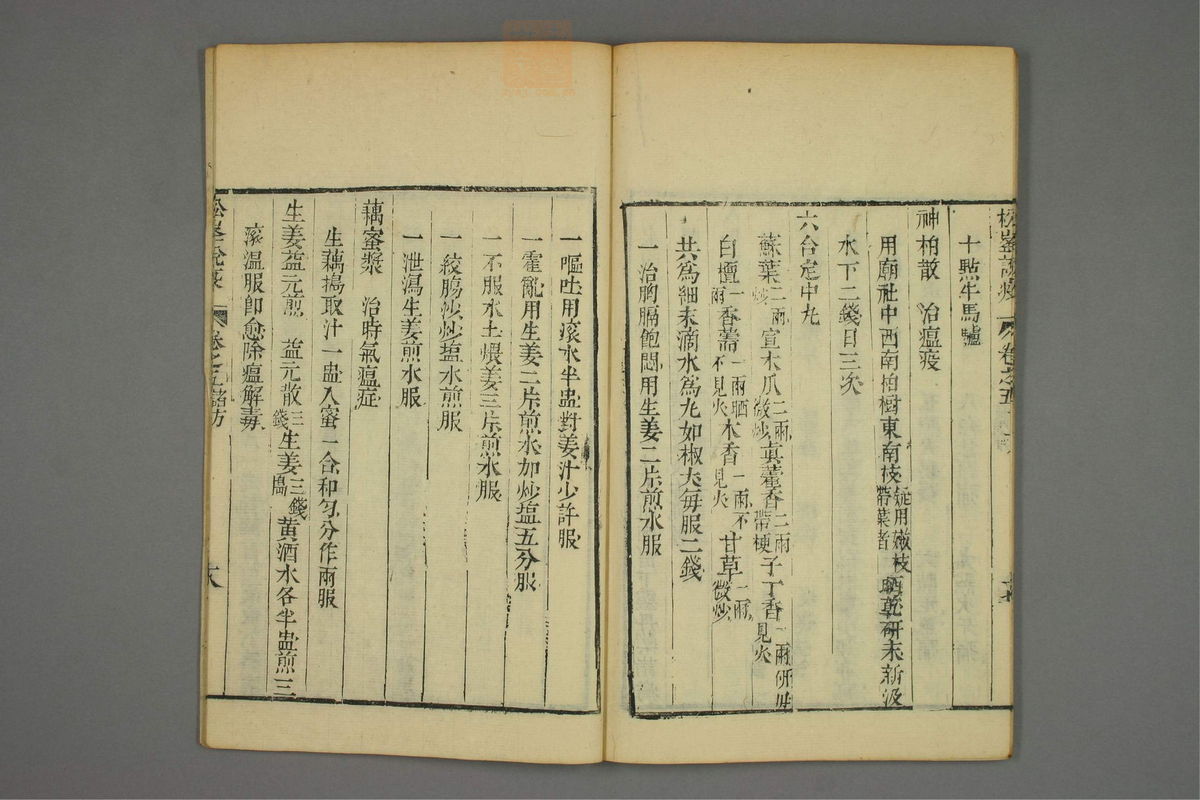 松峯說疫 卷之五
十㸃牛馬驢
神柏散 治瘟疫
用廟社中西南柏樹東南枝 帶葉者 晒乾研末新汲
水下二錢日三次
六合定中丸
蘇葉 二兩炒 宣木瓜 二兩微炒 真藿香 二兩帶梗 子丁香 一兩研毋見火
白檀 一兩 香薷 一兩晒不見火 木香 一兩不見火 甘草 一兩微炒
共為細末滴水為丸如椒大每服二錢
一治胸膈飽悶用生姜二片煎水服
一嘔吐用滚水半盅對姜汁少許服
一霍亂用生姜二片煎水加炒塩五分服
一不服水土煨姜三片煎水服
一絞腸痧炒塩水煎服
一泄瀉生姜煎水服
藕蜜漿 治時氣瘟症
生藕搗取汁一盅入蜜一合和匀分作兩服
生姜益元煎 益元散 三錢 生姜 三錢搗 黄酒水各半盅煎三
滚温服卽愈除瘟解毒
松峯說疫 卷之五諸方